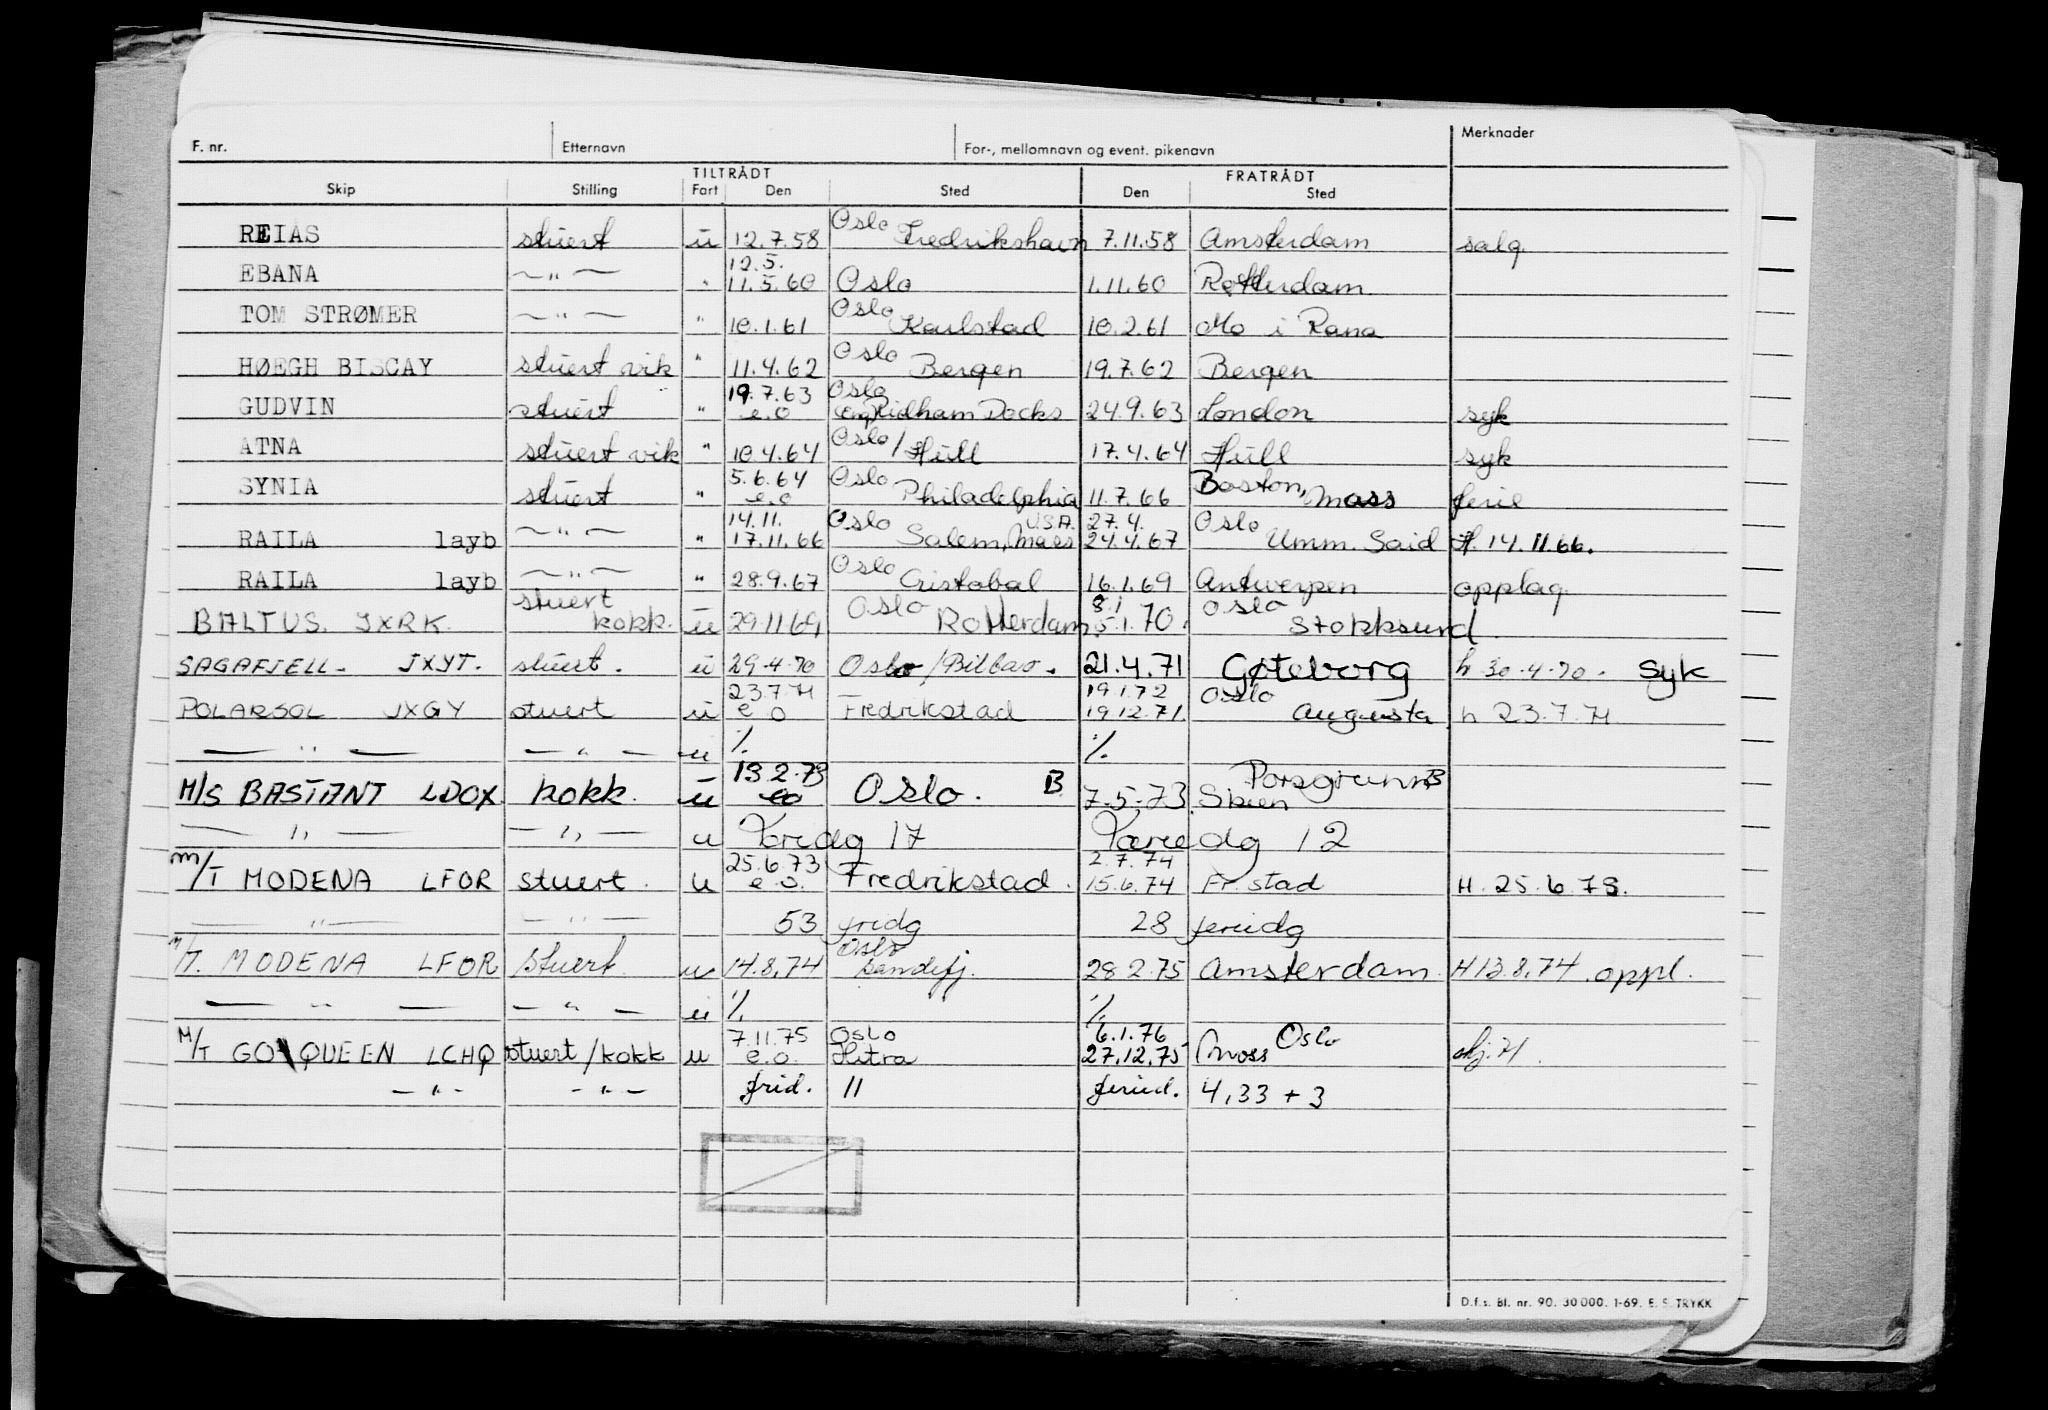 F. nr. Etternavn For-, mellomnavn og event. pikenavn Merknader
TILTRÅDT FRATRÅDT
Skip Stilling Fart Den Sted Den Sted
REIAS stuert u 12.7.58 Oslo Fredrikshavn 7.11.58 Amsterdam salg
EBANA —"— " 12.5. 11.5.60 Oslo 1.11.60 Rotterdam
TOM STRØMER —"— " 10.1.61 Oslo Karlstad 10.2.61 Mo i Rana
HØEGH BISCAY stuert vik " 11.4.62 Oslo Bergen 19.7.62 Bergen
GUDVIN stuert " 19.7.63 e.o Oslo eng Ridham Docks 24.9.63 London syk
ATNA stuert vik " 10.4.64 Oslo / Hull 17.4.64 Hull syk
SYNIA stuert " 5.6.64 e.o Oslo Philadelphia 11.7.66 Boston, Mass ferie
RAILA layb —"— " 14.11. 17.11.66 Oslo USA. Salem, Mass 27.4. 24.4.67 Oslo Umm. Said H. 14.11.66.
RAILA layb —"— " 28.9.67 Oslo Cristobal 16.1.69 Antwerpen opplag
BALTUS. JXRK. stuert kokk. u 29.11.69 Oslo Rotterdam 8.1 5.1.70. Oslo Stokksund.
SAGAFJELL- JXYT. stuert. u 29-4-70 Oslo/Bilbao. 21.4.71 Gøteborg h 30-4-70. Syk
POLARSOL JXGY stuert u 23.7.71 e o Fredrikstad 19.1.72 19.12.71. Oslo Augusta h 23.7.71
— " — — " — u %. %.
M/S BASTANT LDOX kokk. u 13.2.73 eo Oslo. B 7.5.73 Porsgrunn B Skien
— " — — " — u Varedg 17 Varedg 12
M/T MODENA LFOR stuert. u 25.6.73 e.o. Fredrikstad. 2.7.74 15.6.74 Fr.stad H. 25.6.73.
— " — — " — 53 fridg 28 feridg
M/T. MODENA LFOR Stuert. u 14.8.74 Oslo Sandefj. 28.2.75 Amsterdam. H 13.8.74. oppl.
— " — — " — u %. %.
M/T GO QUEEN LCHQ stuert/kokk u 7.11.75 e.o. Oslo Hitra 6.1.76 27.12.75 Oslo Moss
— " — — " — frid. 11 feried. 4,33 + 3
D.f.s. Bl. nr. 90. 30 000. 1-69. E. S. TRYKK